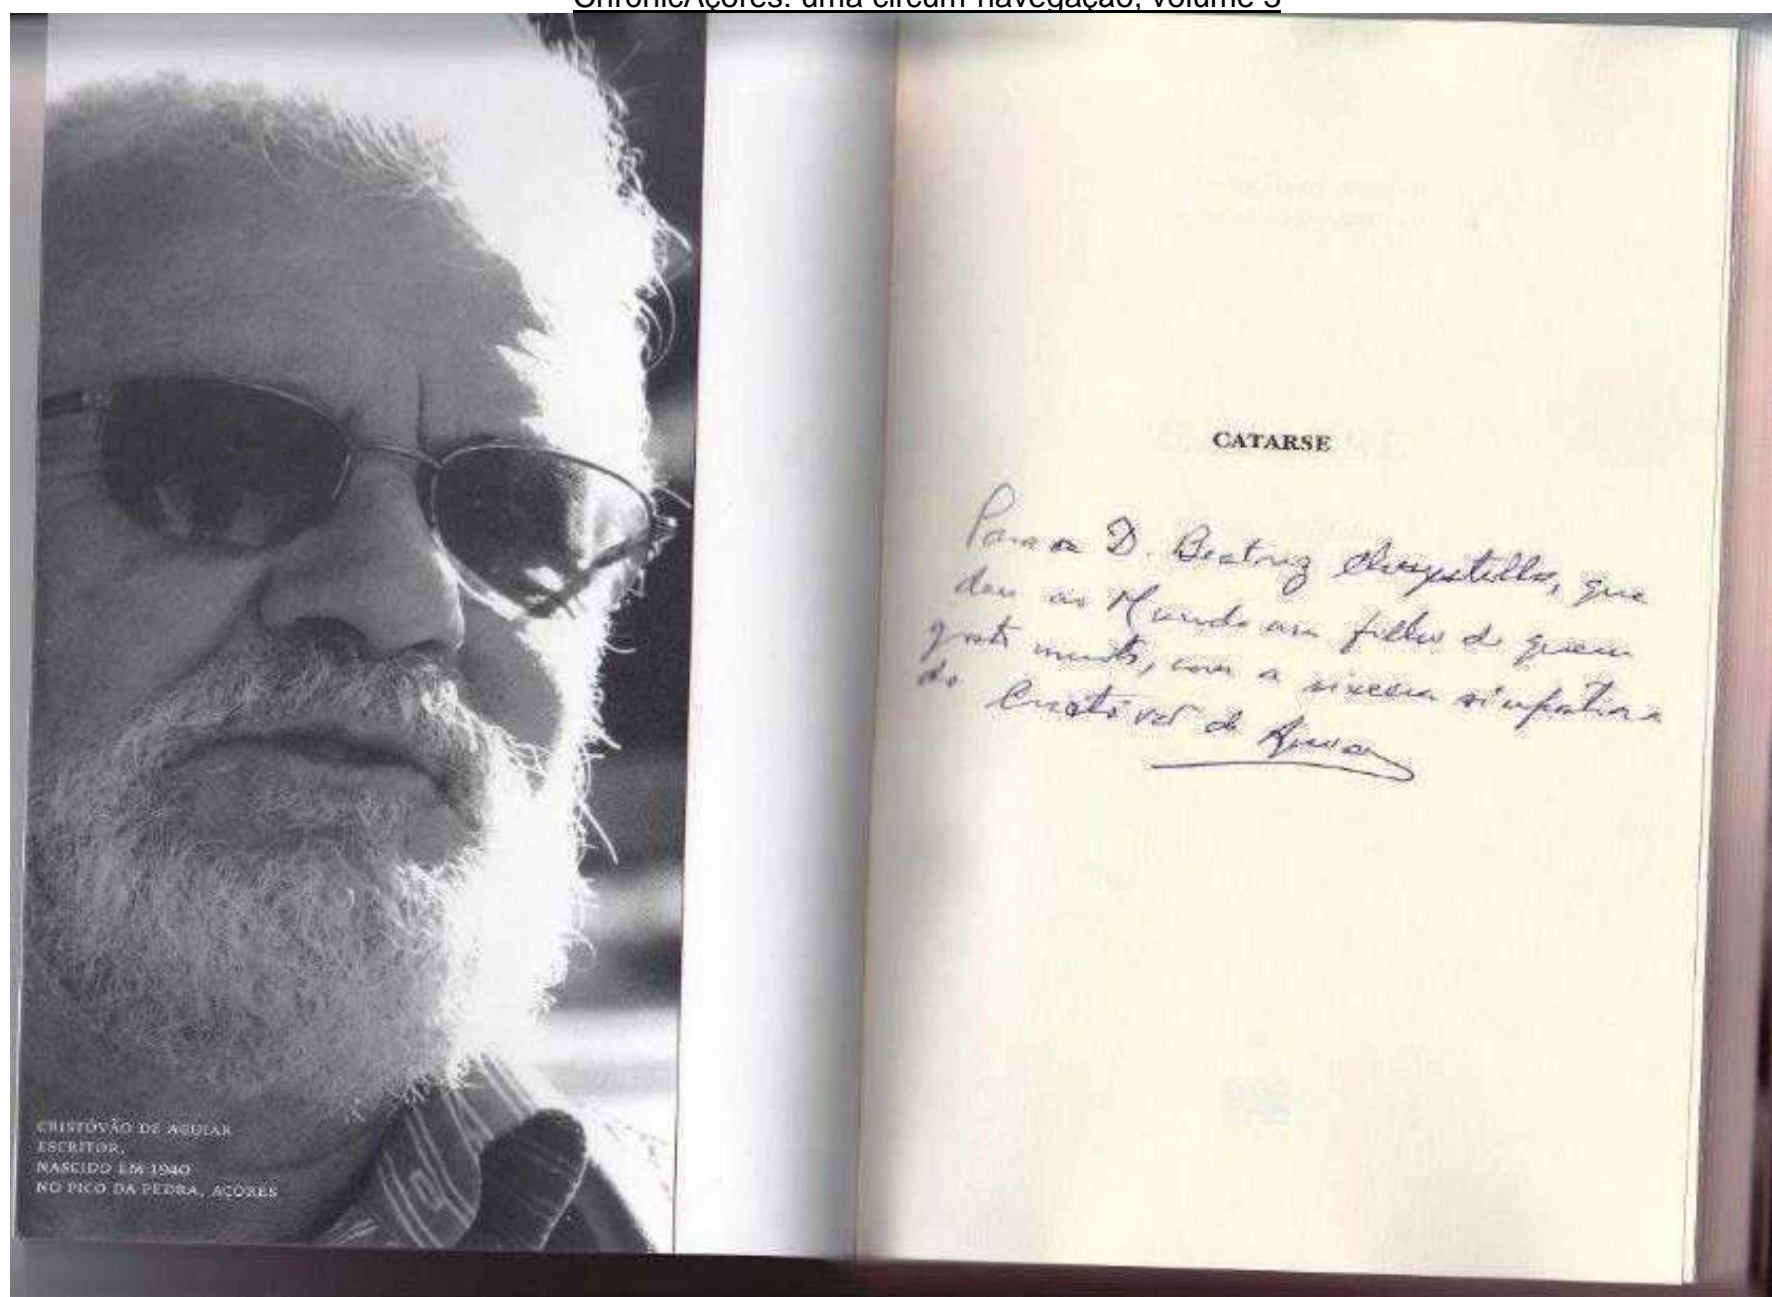 ChronicAçores: uma circum-navegação, volume 3
CRISTÓVÃO DE AGUIAR
ESCRITOR,
NASCIDO EM 1940
NO PICO DA PEDRA, AÇORES
CATARSE
Para a D. Beatriz Chrystello, que
deu ao Mundo um filho de quem
gosto muito, com a sincera simpatia
do Cristóvão de Aguiar